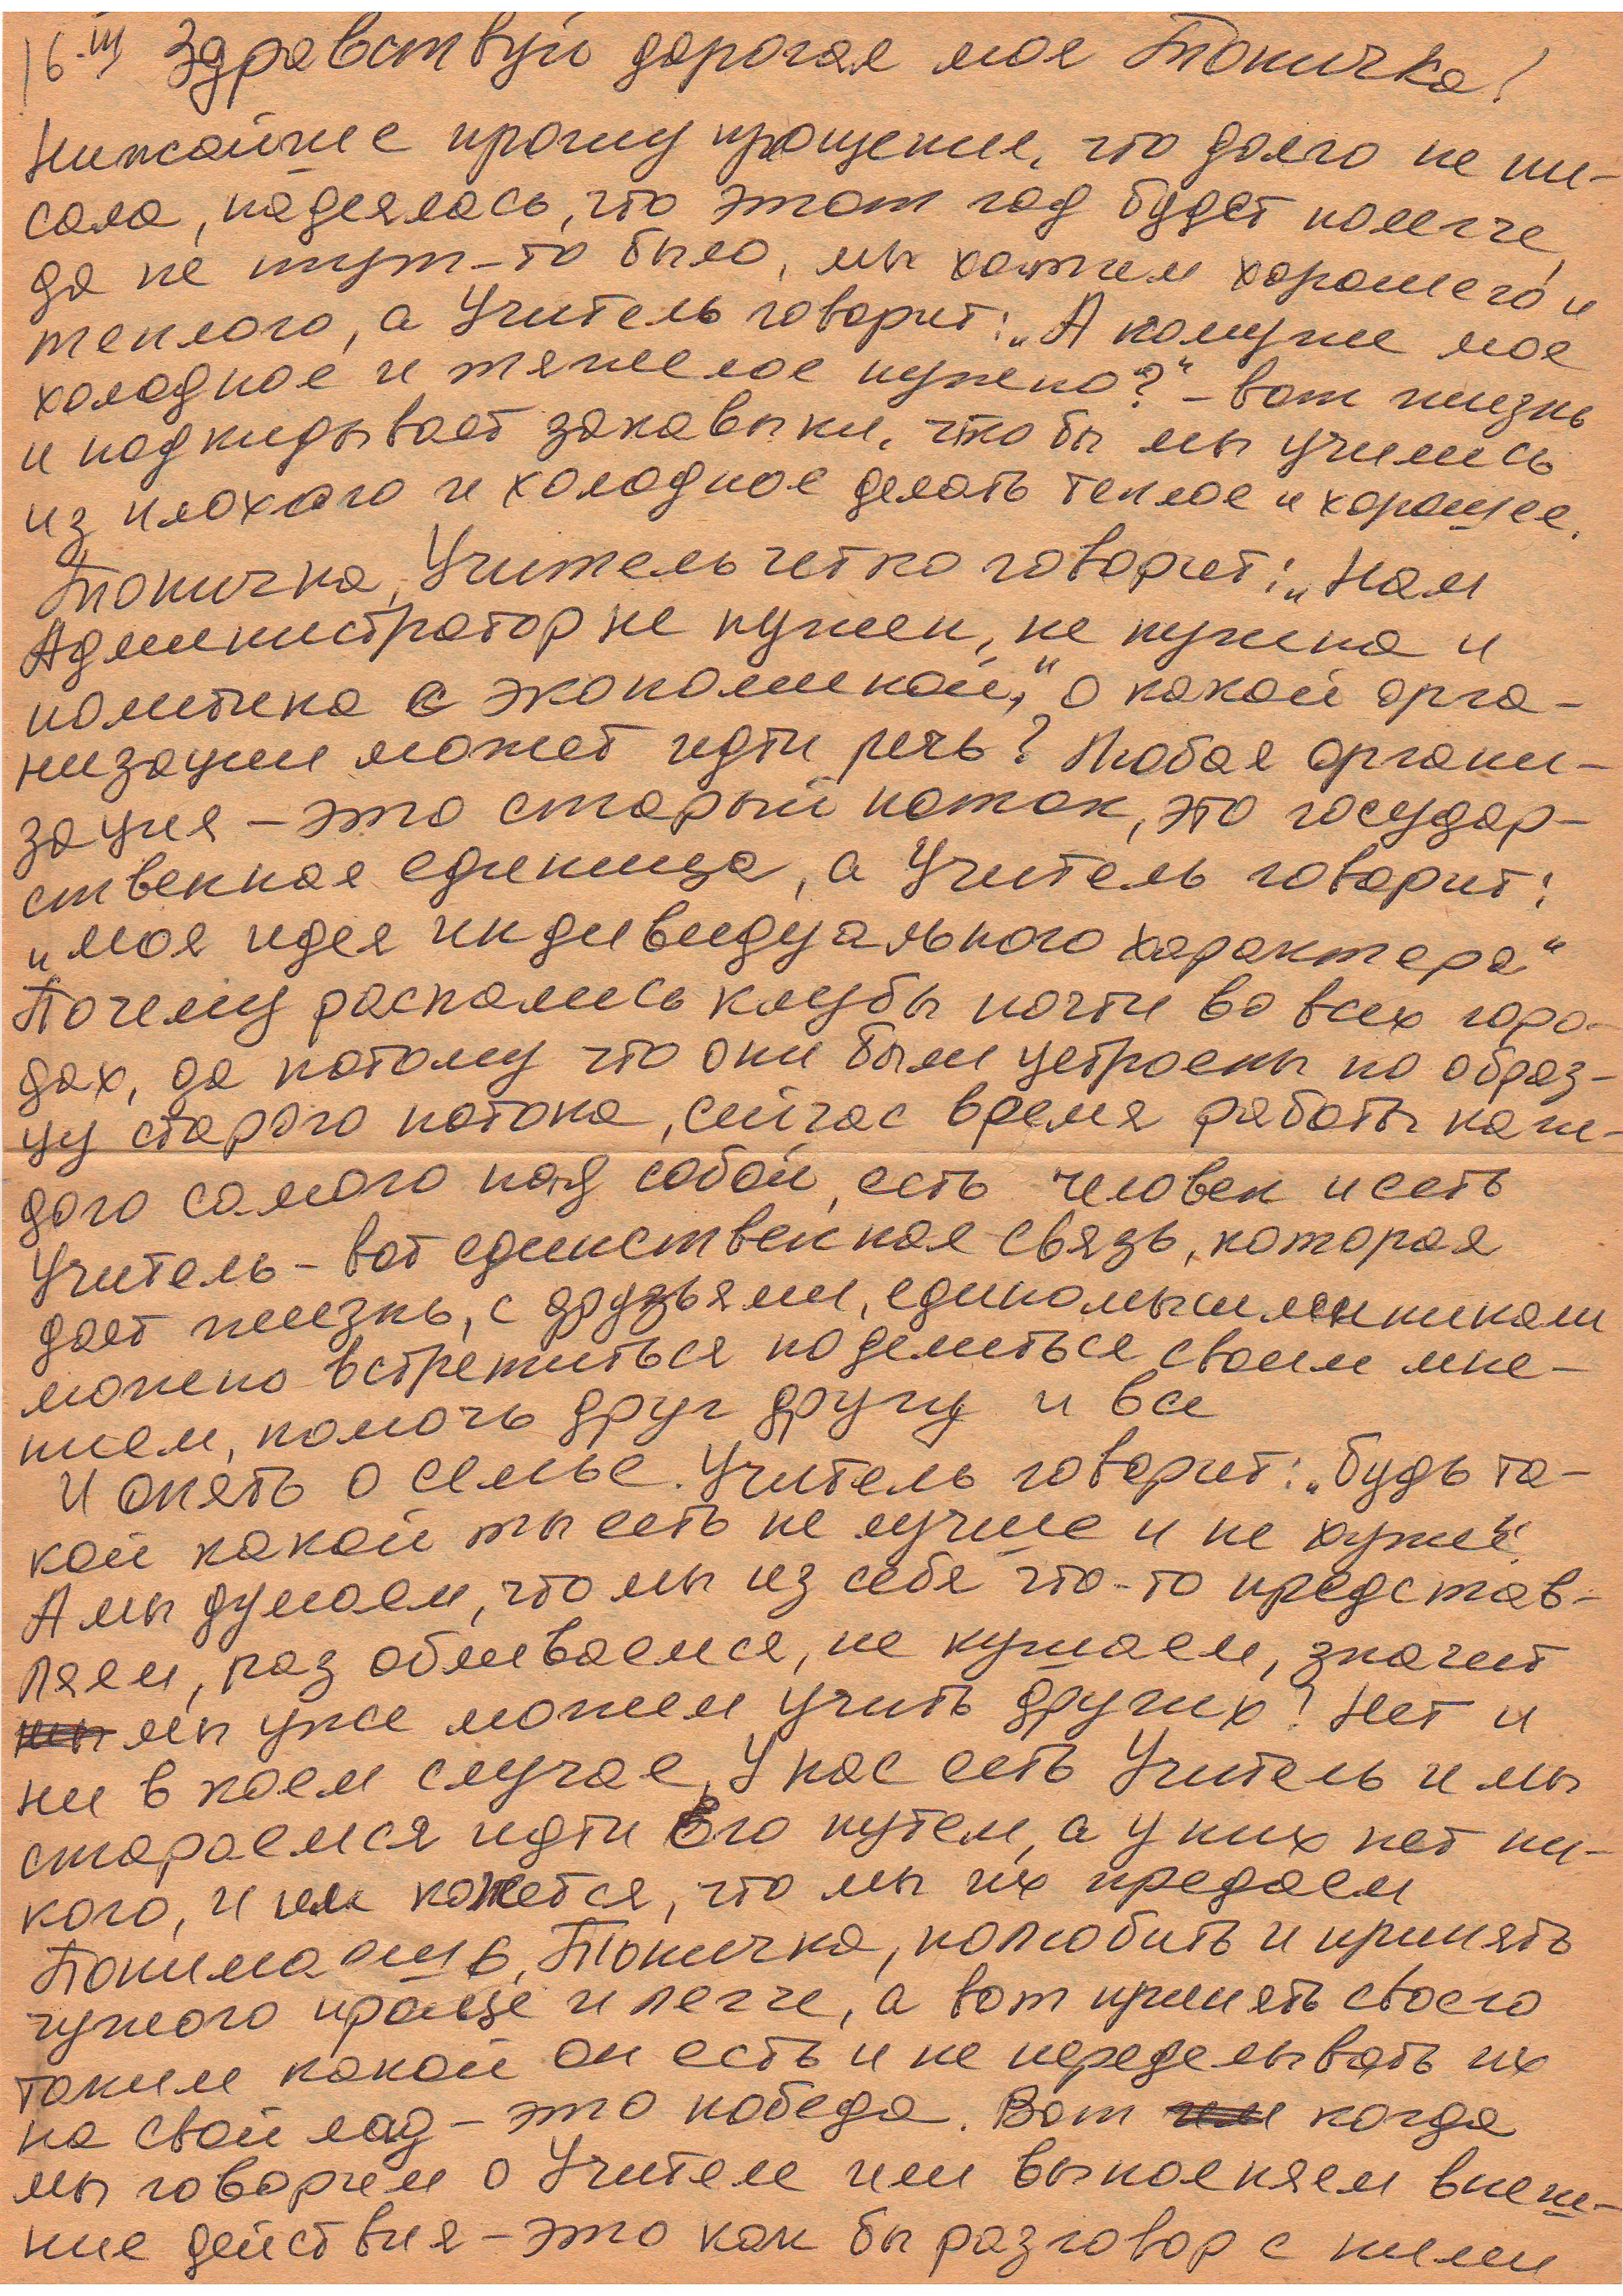 16.III Здравствуй дорогая моя Тоничка!
Нижайше прошу прощение, что долго не пи-
сала, надеялась, что этот год будет полегче,
да не тут-то было, мы хотим хорошего и
теплого, а Учитель говорит: „А кому же мое
холодное и тяжелое нужно?" – вот жизнь
и подкидывает закавыки, чтобы мы учились
из плохого и холодное делать теплое и хорошее.
Тоничка, Учитель четко говорит: „Нам
Администратор не нужен, не нужна и
политика с экономикой", о какой орга-
низации может идти речь? Любая органи-
зация – это старый поток, это государ-
ственная единица, а Учитель говорит:
„моя идея индивидуального характера"
Почему распались клубы почти во всех горо-
дах, да потому что они были устроены по образ-
цу старого потока, сейчас время работы каж-
дого самого над собой, есть человек и есть
Учитель – вот единственная связь, которая
дает жизнь, с друзьями, единомышленниками
можно встретиться поделиться своим мне-
нием, помочь друг другу и все
И опять о семье. Учитель говорит: „будь та-
кой какой ты есть не лучше и не хуже".
А мы думаем, что мы из себя что-то представ-
ляем, раз обливаемся, не кушаем, значит
мы уже можем учить других! Нет и
ни в коем случае, У нас есть Учитель и мы
стараемся идти Его путем, а у них нет ни-
кого, и им кажется, что мы их предаем
Понимаешь, Тоничка, полюбить и принять
чужого проще и легче, а вот принять своего
таким какой он есть и не переделывать их
на свой лад – это победа. Вот когда
мы говорим о Учителе или выполняем внеш-
ние действия – это как бы разговор с ними